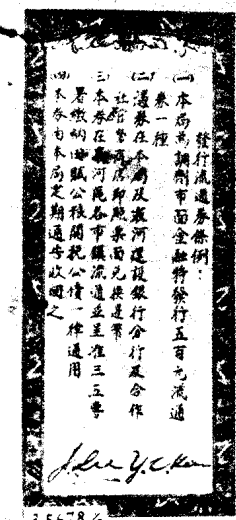 發行流通券條例：
(一)本局為調劑市面金融特發行五百元流通
券一種
(二)憑券在本局及裁河建設銀行分行及合作
社 即照票面兌換邊幣
三本券在 河區各市鎮流通並准三五專
署繳納田賦公糧關稅公債一律通用
四本券由本局定期通告收回之
35678